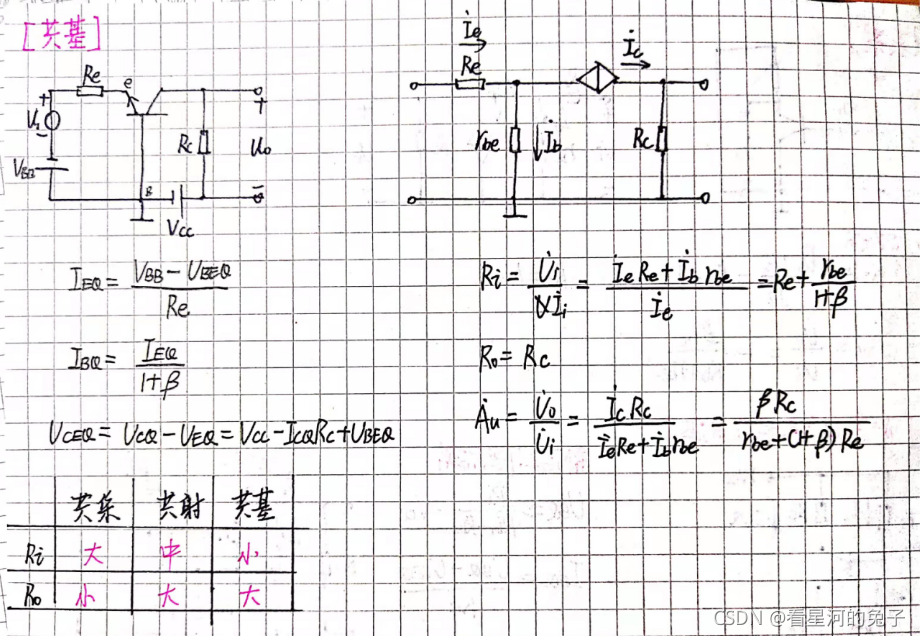 [共基]
Re
e
+
U₁
−
VBB
B
VCC
Rc
+
Uo
−
İe
Re
İc
rbe
İb
Rc
IEQ = (VBB − UBEQ) / Re
IBQ = IEQ / (1+β)
UCEQ = UCQ − UEQ = VCC − ICQRC + UBEQ
Ri = U̇i / İi = (İeRe + İb rbe) / İe = Re + rbe / (1+β)
Ro = Rc
Ȧu = U̇o / U̇i = İcRc / (İeRe + İb rbe) = βRc / (rbe + (1+β)Re)
共集 共射 共基
Ri 大 中 小
Ro 小 大 大
CSDN @看星河的兔子